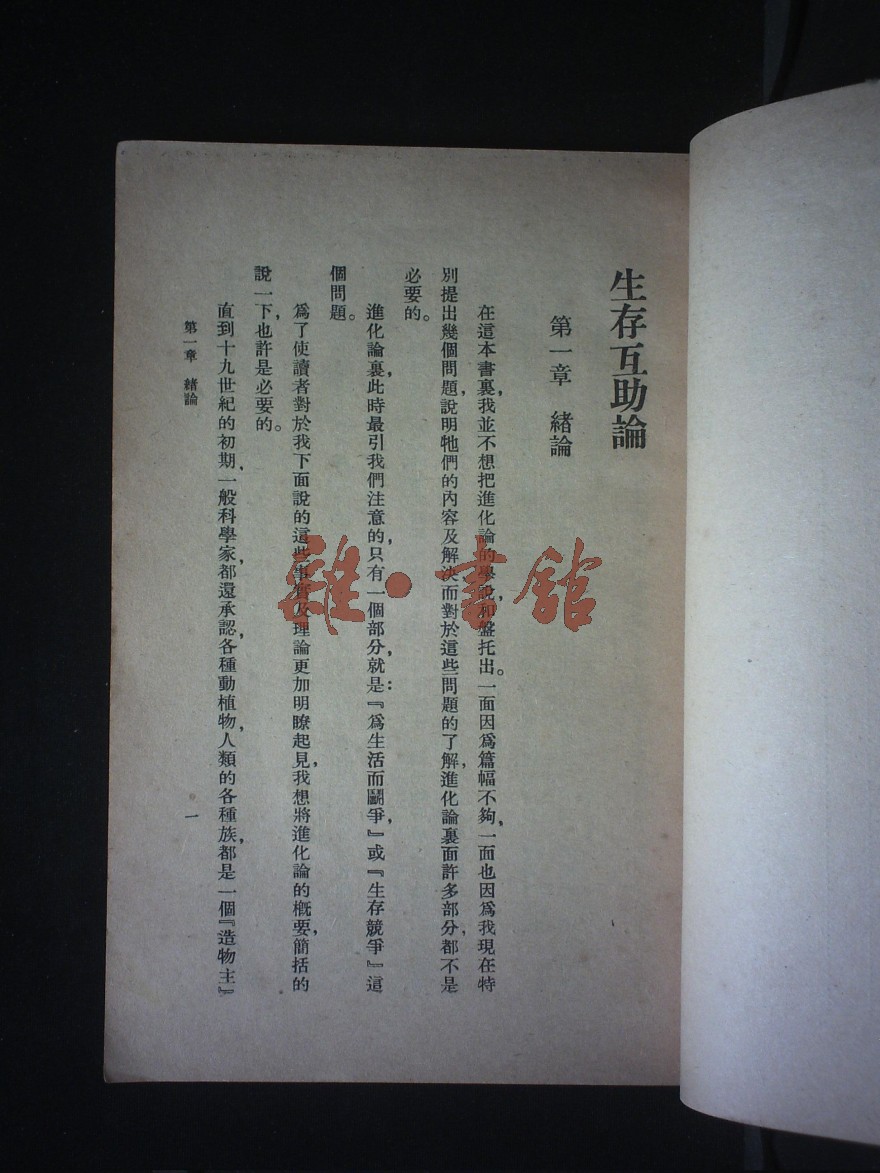 生存互助論
第一章 緒論
在這本書裏,我並不想把進化論的學說,和盤托出。一面因爲篇幅不夠,一面也因爲我現在特
別提出幾個問題,說明牠們的內容及解決而對於這些問題的了解,進化論裏面許多部分,都不是
必要的。
進化論裏,此時最引我們注意的,只有一個部分,就是:『爲生活而鬭爭,』或『生存競爭』這
個問題。
爲了使讀者對於我下面說的這些事實及理論更加明瞭起見,我想將進化論的概要,簡括的
說一下,也許是必要的。
直到十九世紀的初期,一般科學家,都還承認,各種動植物,人類的各種族,都是一個『造物主』
第一章 緒論
一
雜·書館